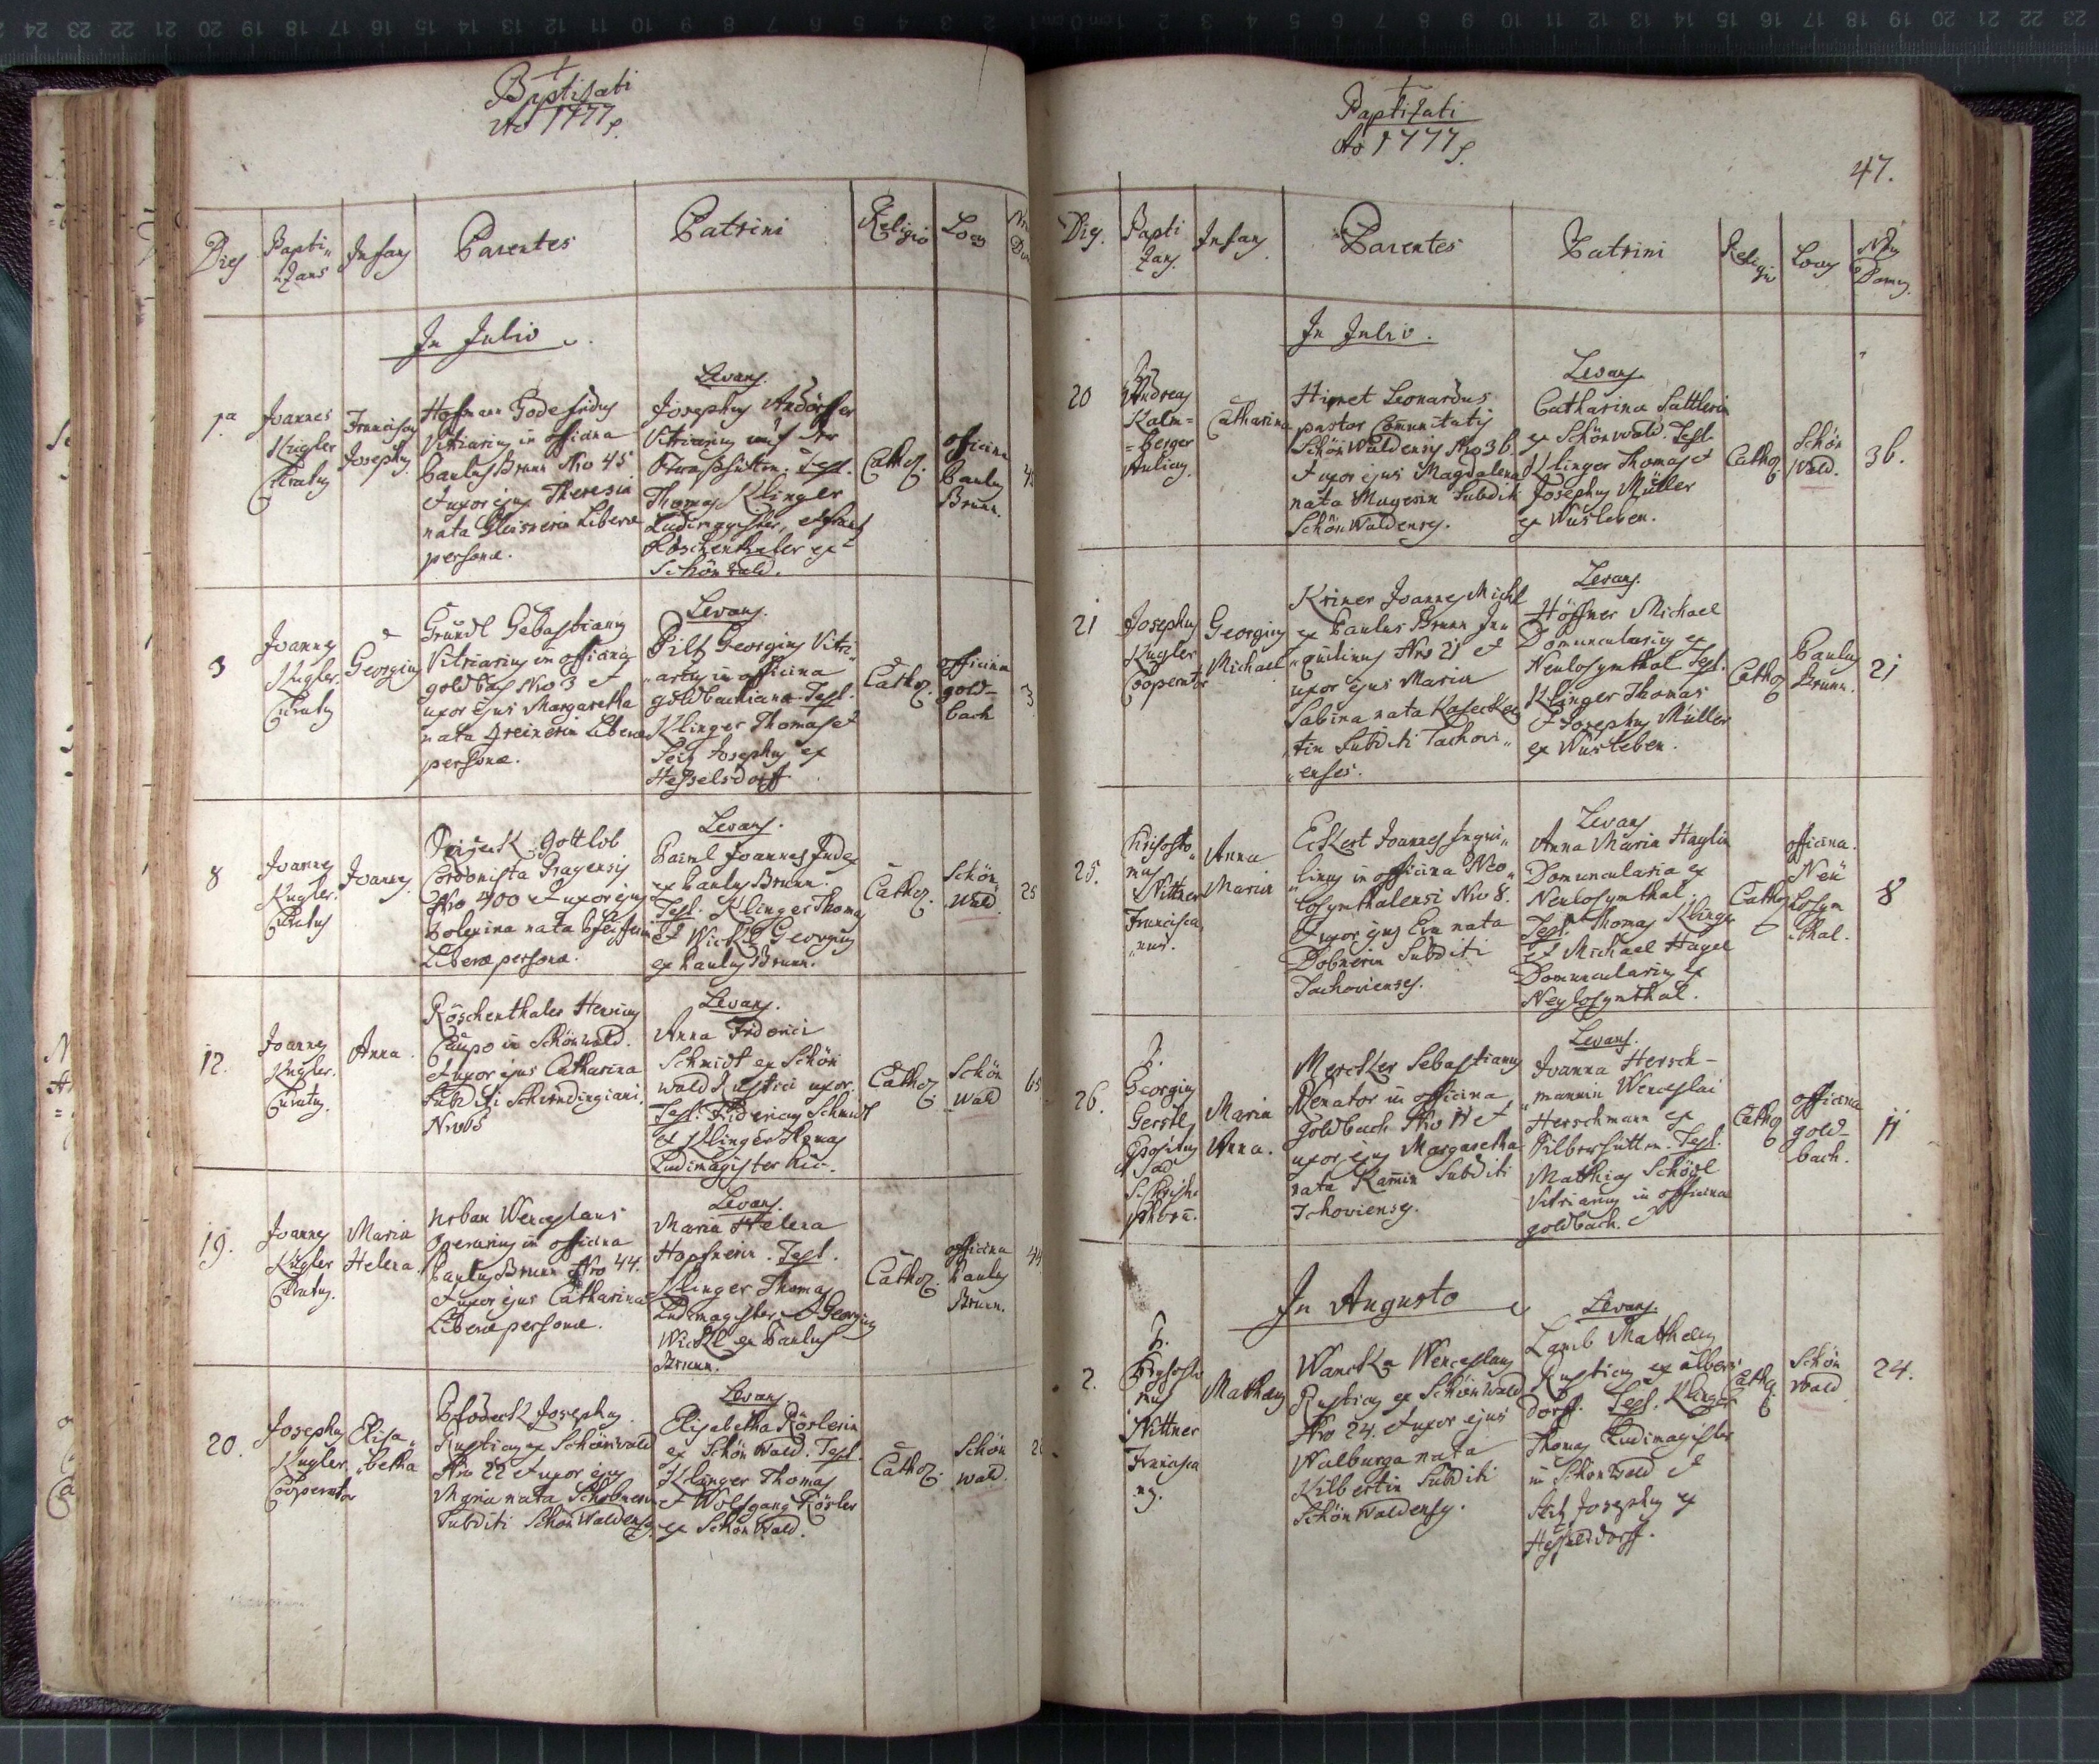 Baptisati
Ao 1777
Dies
Bapti-
zans
Infans
Parentes
Patrini
Religio
Locus
In Julio
1ma
Joannes
Kugler
Curatus
Franciscus
Josephus
Hofmann Godefridus
Vitriarius in officina
Paulus Brunn Nro 45
et uxor ejus Theresia
nata Gleisnerin Liberae
personae.
Levans.
Josephus Andörffer
Vitriarius auf der
Straßhütten. Test.
Thomas Klinger
Ludimagister, et Frantz
Röschenthaler ex
Schönwald.
Cathol.
officina
Paulus
Brunn.
3
Joannes
Kugler.
Curatus
Georgius
Gründl Sebastianus
Vitriarius in officina
goldbach Nro 3 et
uxor ejus Margaretha
nata Greinerin Liberae
personae.
Levans.
Piltz Georgius Vitri-
arius in officina
goldbachiana Test.
Klinger Thomas et
Seitz Josephus ex
Hesselsdorff
Cathol.
officina
gold-
bach
3
8
Joannes
Kugler.
Curatus
Joannes
Gottlob
Cordonista Pragensis
Nro 400 et uxor ejus
nata Pfeifferin
Liberae personae.
Levans.
Joannes Judex
ex Paulus Brunn.
Test. Klinger Thomas
et Wickl Georgius
ex Paulus Brunn.
Cathol.
Schön
wald.
25
12.
Joannes
Kugler.
Curatus.
Anna.
Röschenthaler Henricus
Caupo in Schönwald.
et uxor ejus Catharina
Subditi
Nro 65
Levans.
Anna Friderici
Schmidt ex Schön
wald Rustici uxor.
Test. Fridericus Schmidt
et Klinger Thomas
Ludimagister hic.
Cathol.
Schön
wald
65
19.
Joannes
Kugler
Curatus.
Maria
Helena.
Urban Wenceslaus
Operarius in officina
Paulus Brunn Nro 44.
et uxor ejus Catharina
Liberae personae.
Levans.
Maria Helena
Hopfnerin. Test.
Klinger Thomas
Ludimagister et Georgius
Wickl ex Paulus
Brunn.
Cathol.
officina
Paulus
Brunn.
44
20.
Josephus
Kugler
Cooperator
Elisa-
betha
Josephus.
Rusticus ex Schönwald
Nro 22 et uxor ejus
Maria nata
Subditi Schönwaldenses
Levans
Elisabetha Röslerin
ex Schön Wald. Test.
Klinger Thomas
et Wolfgang Rösler
ex Schön Wald.
Cathol.
Schön
wald.
Baptizati
Ao 1777
47.
Dies.
Bapti
zans.
Infans
Parentes
Patrini
Religio
Locus
Nrus
Domus.
In Julio.
20
Andreas
Kalm-
-berger
Catharina
Leonardus
pastor Comunitatis
Schön Waldensis Nro 36.
et uxor ejus Magdalena
nata Mugerin Subditi
Schön Waldenses.
Levans
Catharina Sattlerin
ex Schönwald. Test.
Klinger Thomas et
Josephus Müller
ex Wusleben.
Cathol.
Schön
Wald.
36.
21
Josephus
Kugler
Cooperator
Georgius
Michael
Kriner Joannes Michl
ex Paulus Brunn In-
quilinus Nro 21 et
uxor ejus Maria
Sabina nata
Subditi Tachovi-
enses.
Levans.
Höffner Michael
Domuncularius ex
Neulosymthal Test.
Klinger Thomas
et Josephus Müller
ex Wusleben.
Cathol.
Paulus
Brunn.
21
25.
Chrisosto-
mus
Nittner
Francisca-
nus.
Anna
Maria
Eckert Joannes Inqui-
linus in officina Neo-
losymthalensi Nro 8.
et uxor ejus Eva nata
Dobnerin Subditi
Tachovienses.
Levans
Anna Maria Haylin
Domuncularia ex
Neulosymthal.
Test. Thomas Klinger
et Michael Hagel
Domuncularius ex
Neylosymthal.
Cathol.
officina.
Neü
Losym
thal.
8
26.
P.
Georgius
Gerstl
Expositus
ad
Maria
Anna.
Mercker Sebastianus
Venator in officina
Goldbach Nro 11 et
uxor ejus Margaretha
nata Subditi
Tchovienses.
Levans.
Joanna Hersch-
mannin Wenceslai
Herschmann ex
Silberhütten. Test.
Mathias Schödl
Vitriarius in officina
goldbach.
Cathol.
officina
gold-
bach.
11
In Augusto
2.
P.
Chrysosto
mus
Nittner
Francisca
nus.
Mathaeus
Wancka Wenceslaus
Rusticus ex Schönwald
Nro 24. et uxor ejus
Walburga nata
Kilbertin Subditi
Schön Waldenses.
Levans.
Lamb Mathaeus
Rusticus ex albers
dorff. Test. Klinger
Thomas Ludimagister
in Schönwald et
Seitz Josephus ex
Hesselsdorff.
Cathol.
Schön
wald
24.